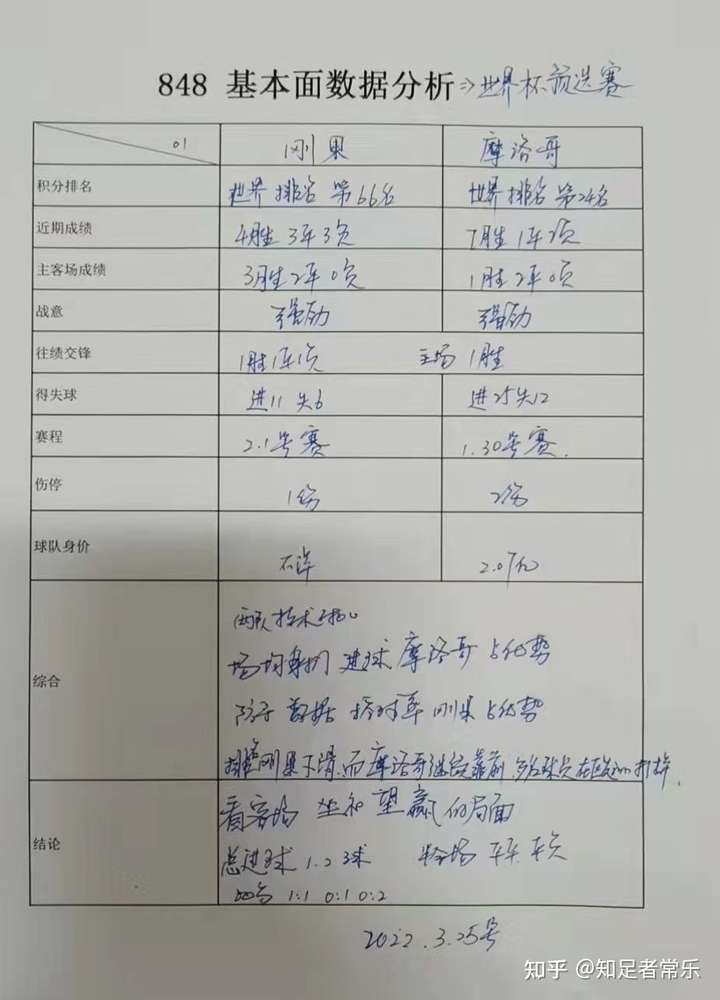 848 基本面数据分析 => 世界杯预选赛
01 刚果 摩洛哥
积分排名 世界排名 第66名 世界排名 第24名
近期成绩 4胜3平3负 7胜1平2负
主客场成绩 3胜2平0负 1胜2平0负
战意 强劲 强劲
往绩交锋 1胜1平1负 主场 1胜
得失球 进11 失6 进25失12
赛程 2.1号赛 1.30号赛.
伤停 1伤 2伤
球队身价 不详 2.07亿
两队技术
场均射门 进球 摩洛哥占优势
综合
防守 数据 控球率 刚果占优势
排名刚果下滑,而摩洛哥继续靠前,多名球员在欧洲打拼.
看客场 坐和望赢的局面
结论
总进球 1.2 3球 半全场 平平 平负
比分 1:1 0:1 0:2
2022.3.25号
知乎 @知足者常乐